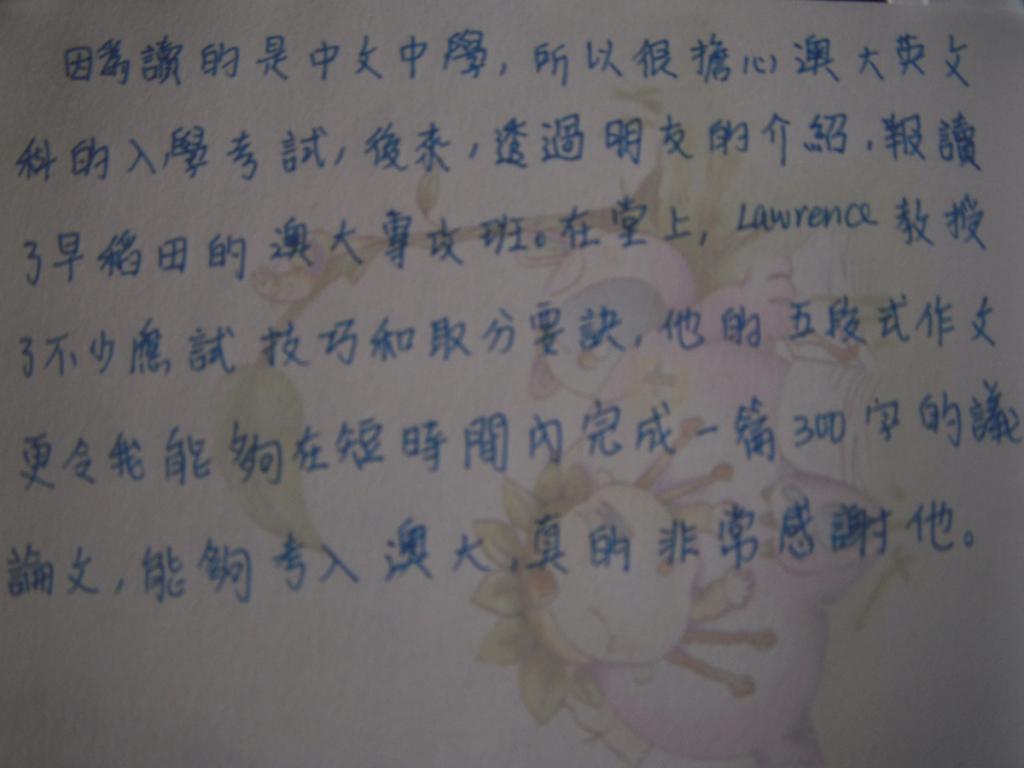 因為讀的是中文中學，所以很擔心澳大英文
科的入學考試，後來，透過朋友的介紹，報讀
了早稻田的澳大專攻班。在堂上，Lawrence教授
了不少應試技巧和取分要訣，他的五段式作文
更令我能夠在短時間內完成一篇300字的議
論文，能夠考入澳大，真的非常感謝他。